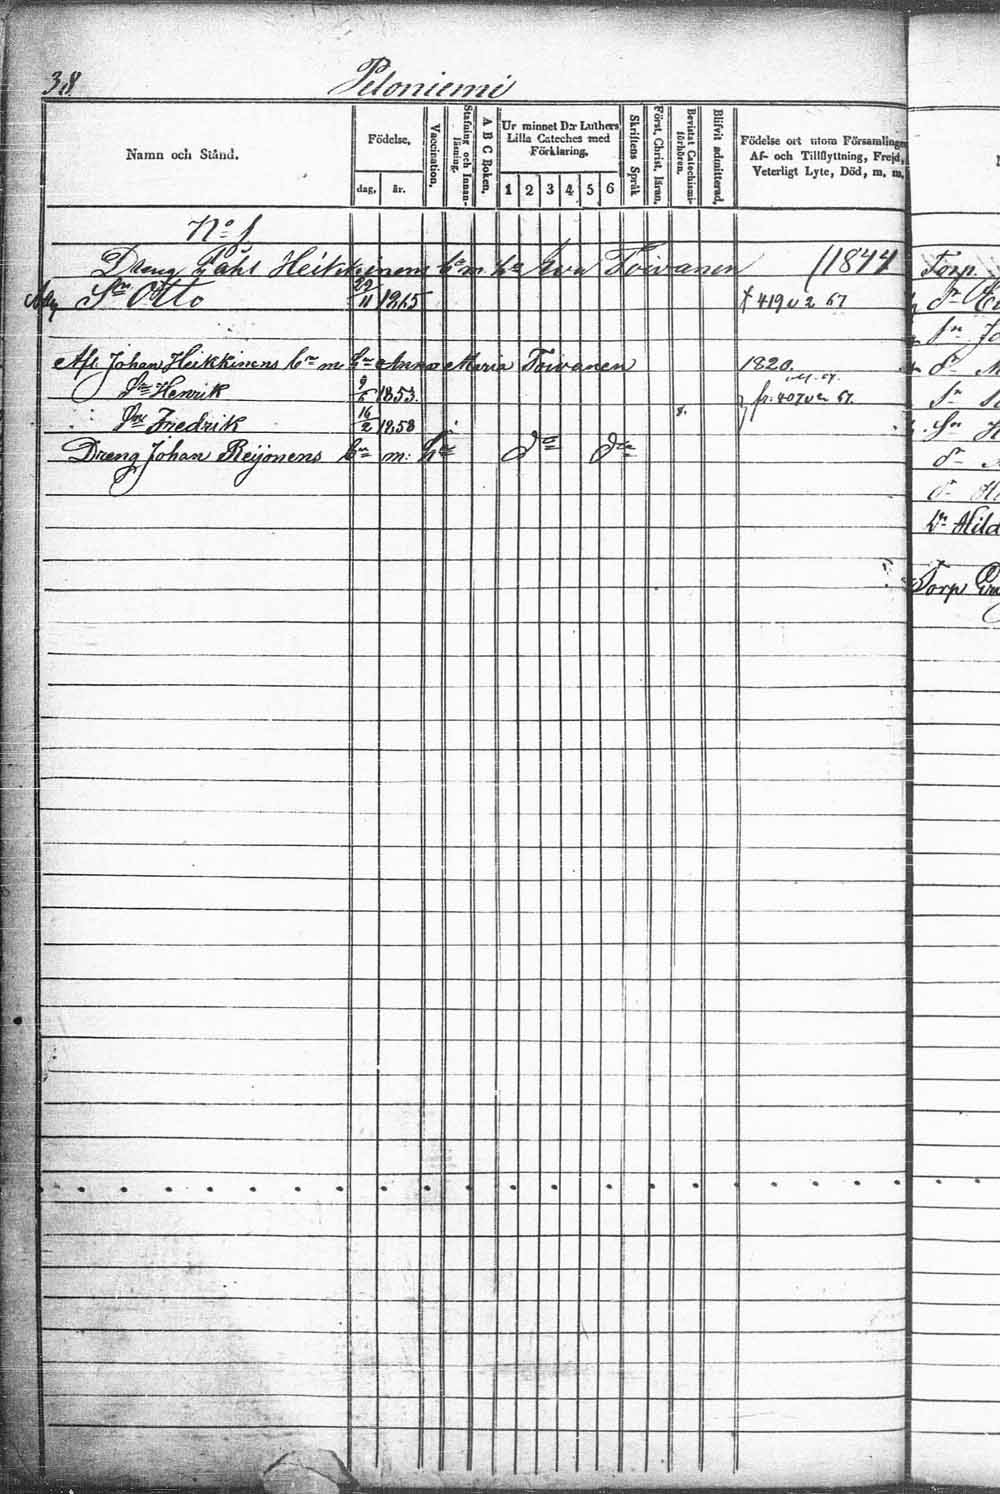 38.
Peloniemi
Namn och Stånd.
Födelse,
dag, år.
Vaccination,
Stafning och Innanläsning.
A B C Boken,
Ur minnet D:r Luthers
Lilla Cateches med
Förklaring.
1 2 3 4 5 6
Skriftens Språk
Först. Christ. läran.
Bevistat Catechismiförhören.
Blifvit admitterad,
Födelse ort utom Församlingen
Af- och Tillflyttning, Frejd,
Veterligt Lyte, Död, m. m.
No 1
Dreng Påhl Heikkinens bn m hu Eva Toivanen (1844
Sn Otto 22/11 1865 419 v 2 67
Afl. Johan Heikkinens bn m hu Anna Maria Toivanen 1820.
Sn Henrik 9/6 1853. fr. 407 v 2 67.
Sn Friedrik 16/2 1858 8.
Dreng Johan Reijonens bn m: hu do do
Torp.
Dn Hild
Torp